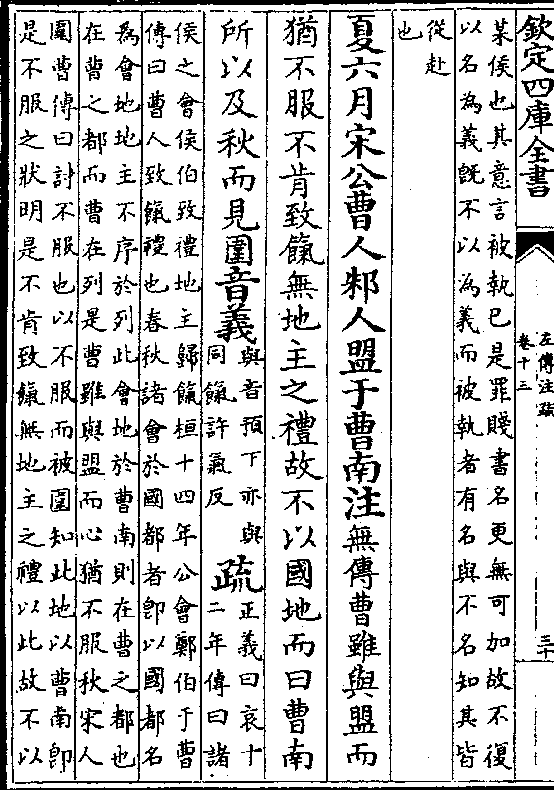 欽定四庫全書
左傳注疏
卷十三
三十
某侯也其意言被執已是罪賤書名更無可加故不復
以名為義既不以為義而被執者有名與不名知其皆
從赴
也
夏六月宋公曹人邾人盟于曹南注無傳曹雖與盟而
猶不服不肯致餼無地主之禮故不以國地而曰曹南
所以及秋而見圍音義與音預下亦與
同餼許氣反疏正義曰哀十
二年傳曰諸
侯之會侯伯致禮地主歸餼桓十四年公會鄭伯于曹
傳曰曹人致餼禮也春秋諸會於國都者即以國都名
為會地地主不序於列此會地於曹南則在曹之都也
在曹之都而曹在列是曹雖與盟而心猶不服秋宋人
圍曹傳曰討不服也以不服而被圍知此地以曹南即
是不服之狀明是不肯致餼無地主之禮以此故不以